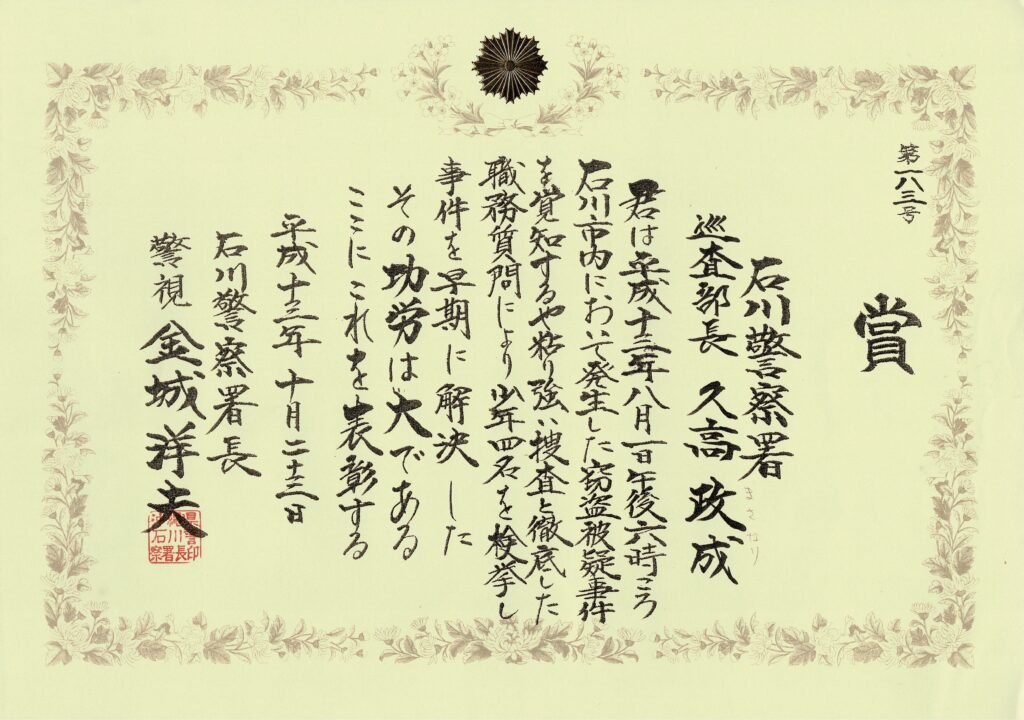 第一八三号
賞
石川警察署
巡査部長 久高政成
まさなり
君は平成十三年八月一日午後六時ころ
石川市内において発生した窃盗被疑事件
を覚知するや粘り強い捜査と徹底した
職務質問により少年四名を検挙し
事件を早期に解決した
その功労は大である
ここにこれを表彰する
平成十三年十月二十三日
石川警察署長
警視 金城洋夫